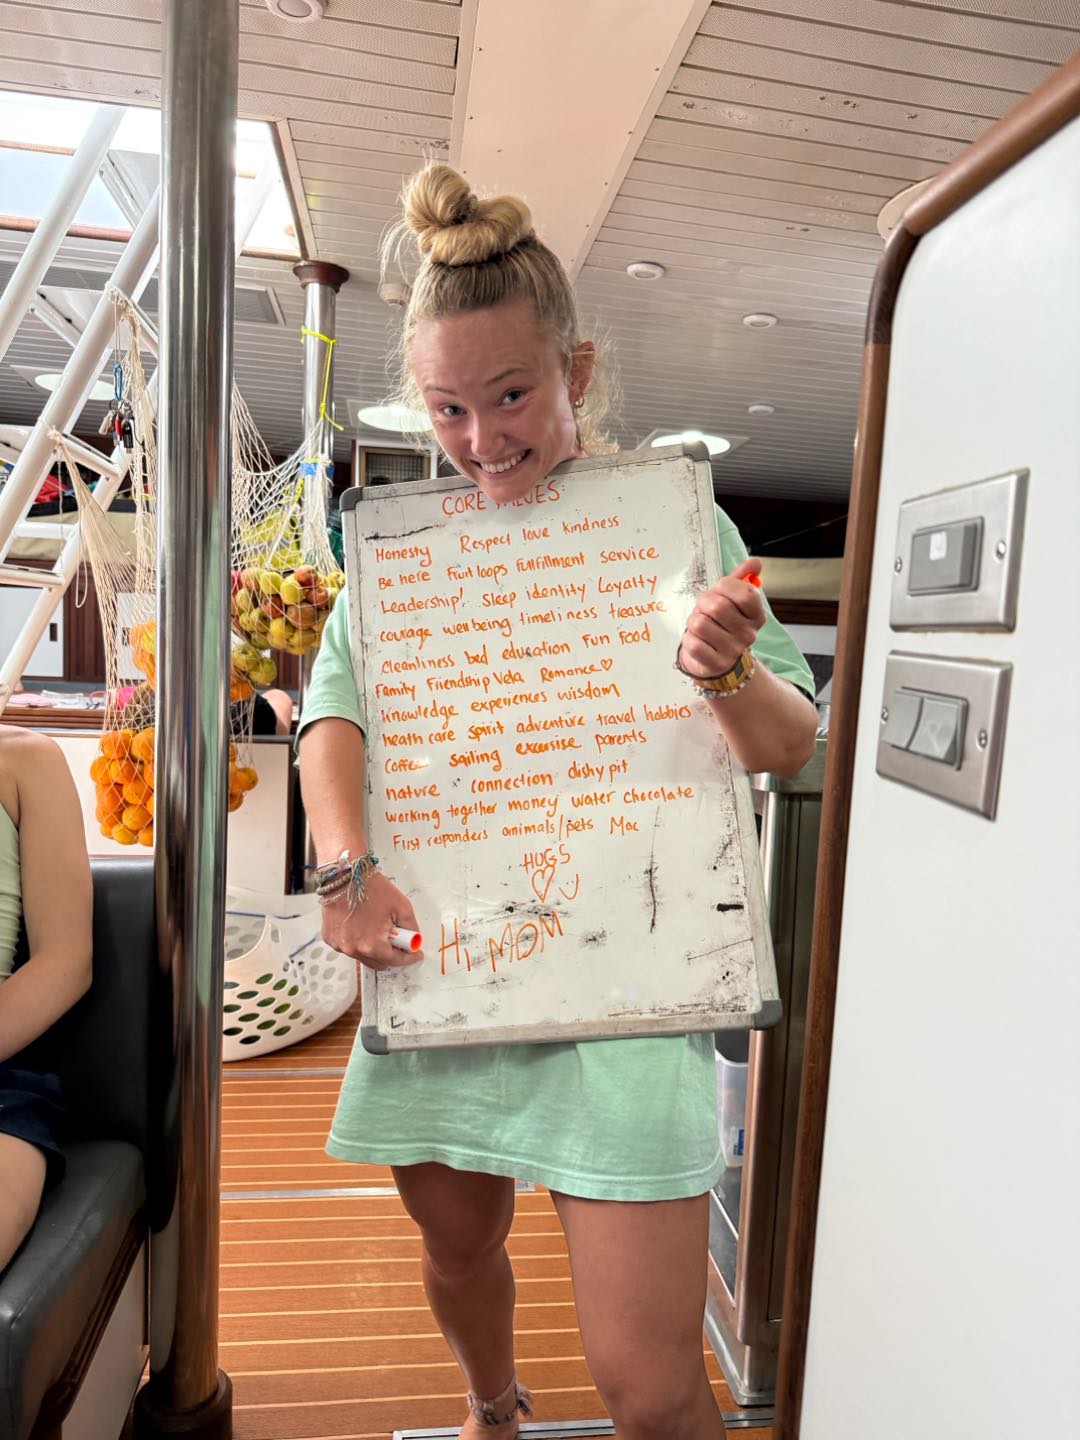 CORE VALUES:
Honesty Respect love kindness
Be here Fruit loops Fullfillment service
Leadership! Sleep identity Loyalty
courage wellbeing timeliness treasure
cleanliness bed education Fun Food
Family Friendship Vela Romance♡
Knowledge experiences wisdom
heath care spirit adventure travel hobbies
Coffee sailing excersise parents
nature connection dishy pit
working together money water chocolate
First responders animals/pets Mac
HUGS
♡ :)
Hi MOM